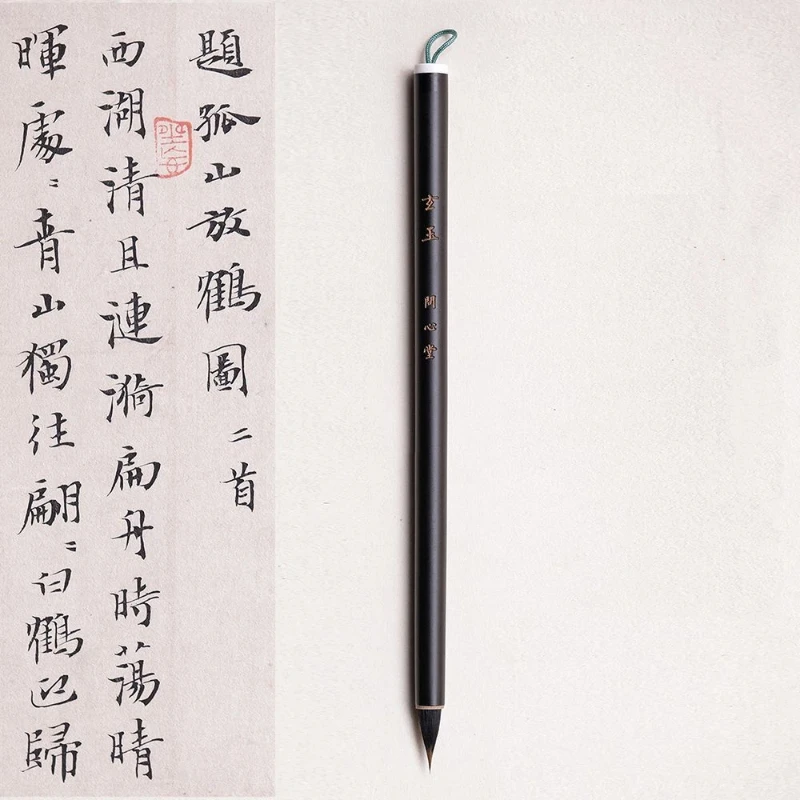 題孤山放鶴圖二首
西湖清且漣漪扁舟時蕩晴
暉處〻青山獨往翩〻白鶴迎歸
玄玉 問心堂